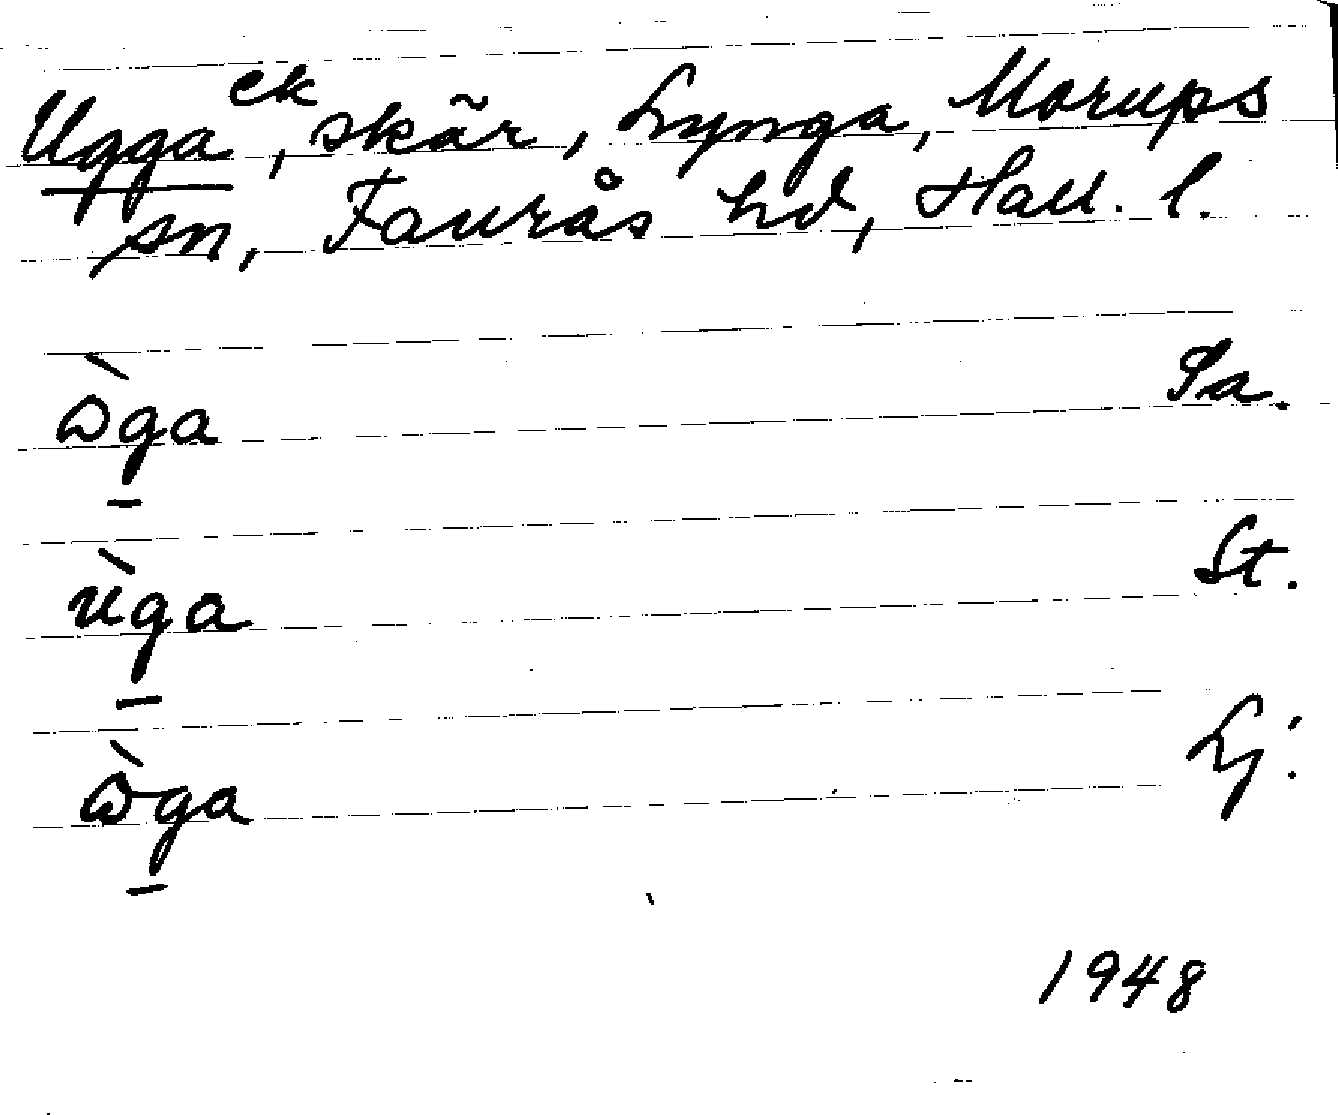 Ugga ek, skär, Lynga, Morups
sn, Faurås hd, Hall. l.
ὼga Sa.
ùga St.
ὼga Lj.
1948